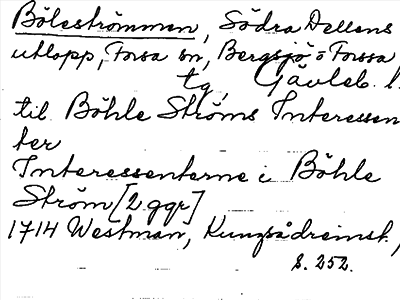 Böleströmmen, Södra Dellens
utlopp, Forsa sn, Bergsjö o Forssa
tg, Gävleb. l.
til Böhle Ströms Interessen
ter
Interessenterne i Böhle
Ström [2 ggr]
1714 Westman, Kungsådreinst.,
s. 252.